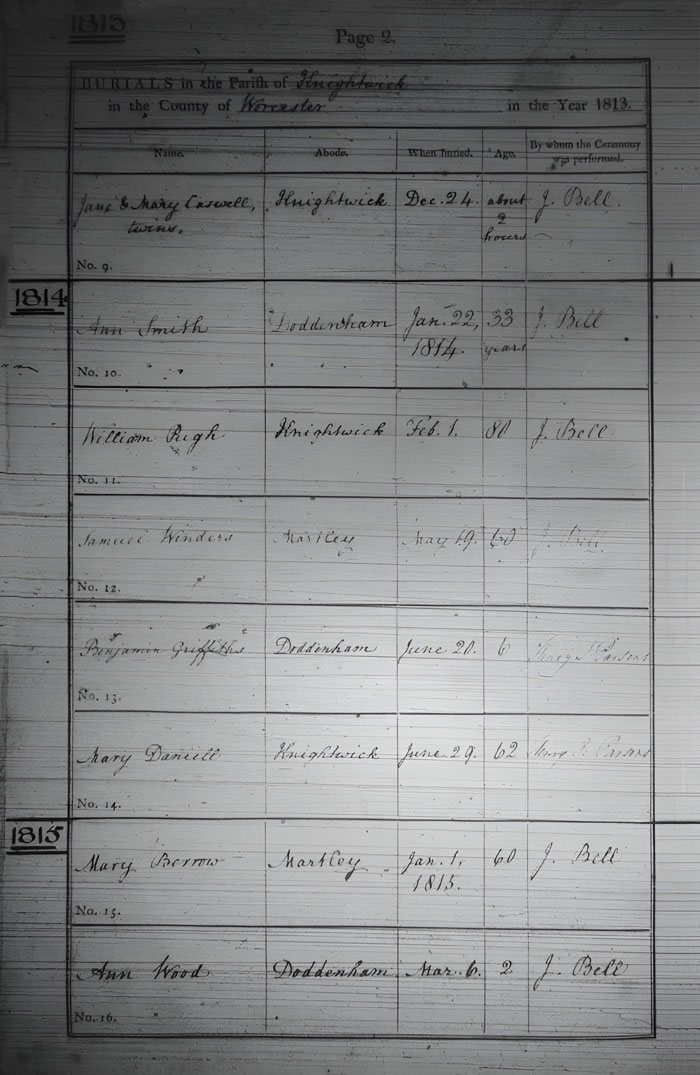 1815
Page 2.
BURIALS in the Parish of Knightwick
in the County of Worcester in the Year 1813.
Name. Abode. When buried. Age. By whom the Ceremony was performed.
Jane & Mary Caswell, twins, Knightwick Dec. 24. about 2 hours J. Bell.
No. 9.
1814
Ann Smith Doddenham Jan. 22, 1814. 33 years J. Bell
No. 10.
William Pugh Knightwick Feb. 1. 80 J. Bell
No. 11.
Samuel Winders Martley May 19. 60 J. Bell
No. 12.
Benjamin Griffiths Doddenham June 20. 6 Parsons
No. 13.
Mary Daniell Knightwick June 29. 62 Parsons
No. 14.
1815
Mary Berrow Martley Jan. 1, 1815. 60 J. Bell
No. 15.
Ann Wood Doddenham Mar. 6. 2 J. Bell
No. 16.